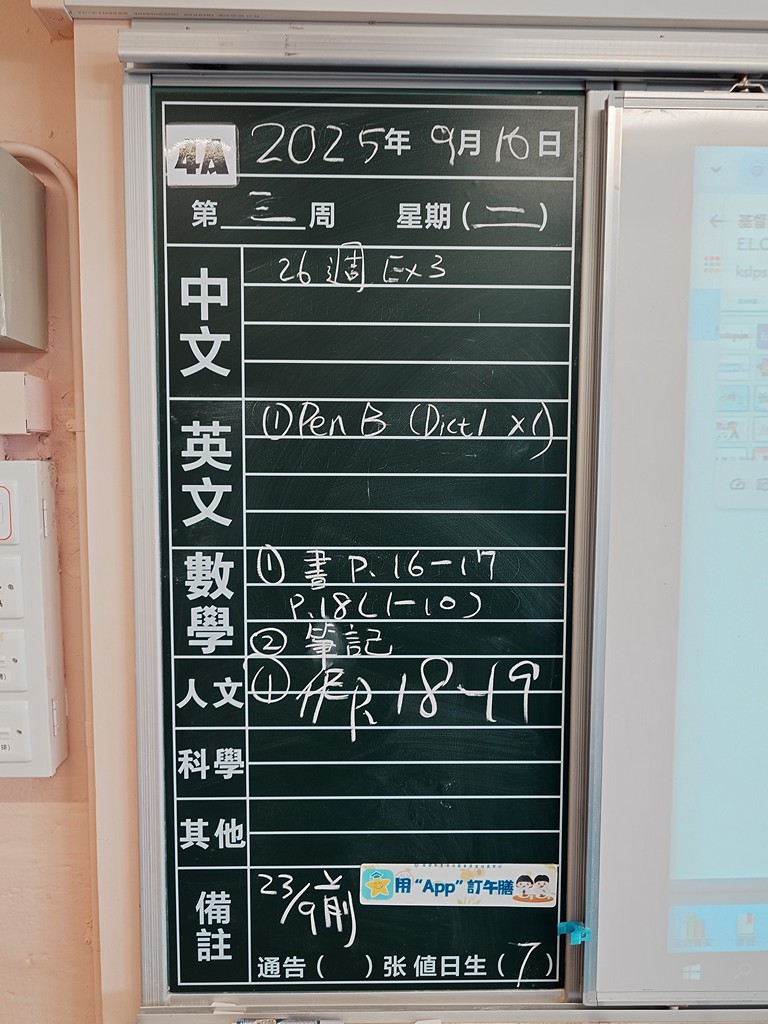 4A 2025年 9月 16日
第 三 周 星期(二)
中文
26 週 Ex 3
英文
① Pen B (Dict1 x1)
數學
① 書 P. 16-17
P.18(1-10)
② 筆記
人文
① 作P. 18-19
科學
其他
備註
23/9前
用“App”訂午膳
通告( )张 值日生(7)
基督
ELC
kslps